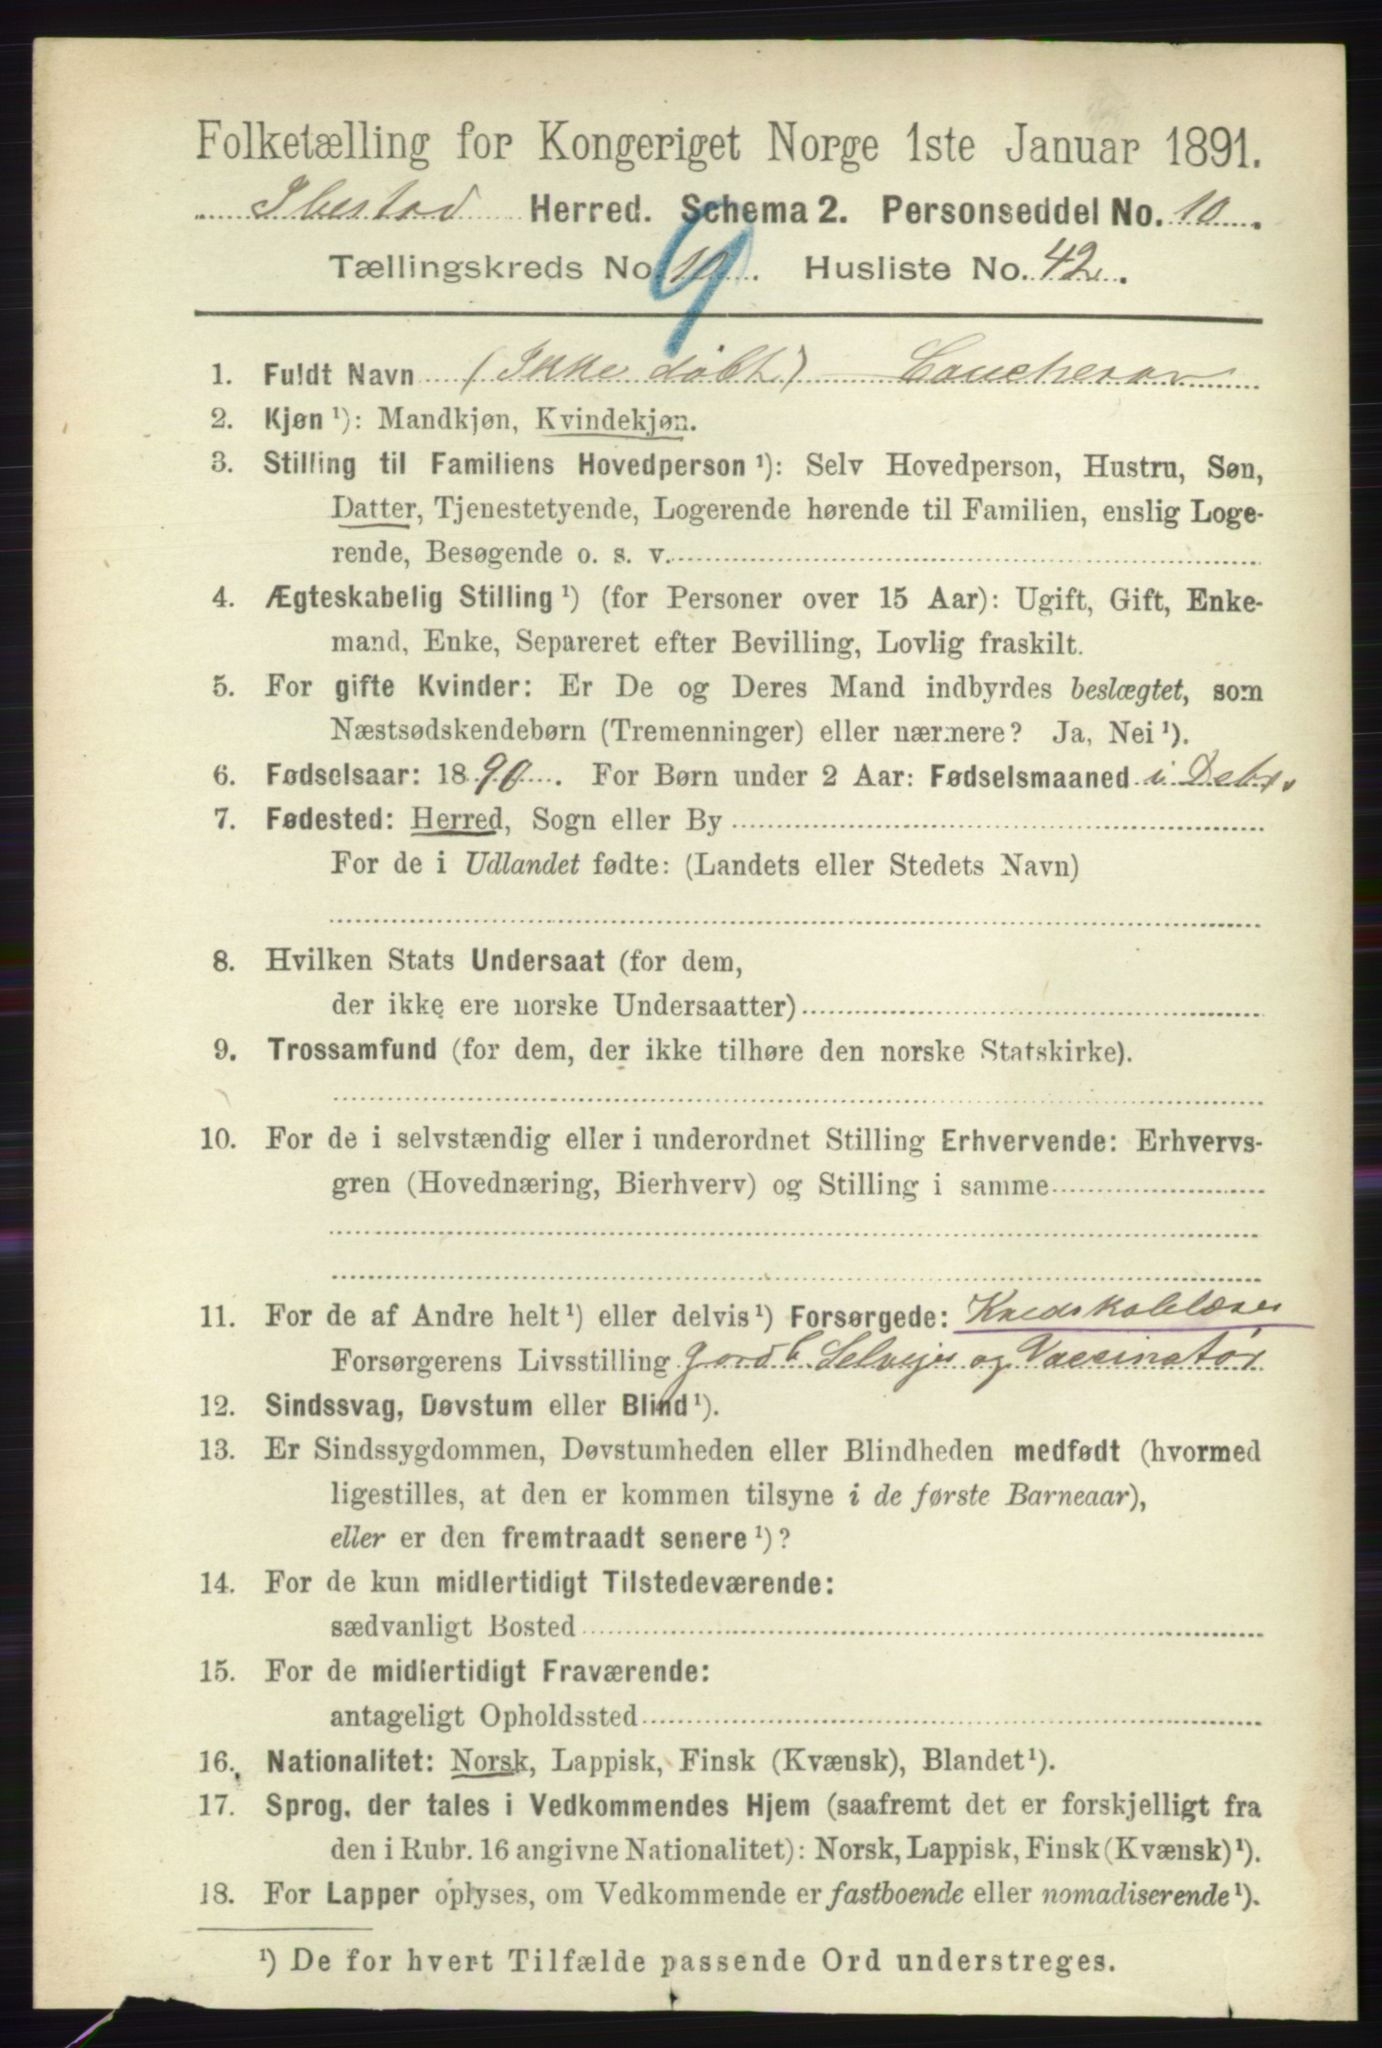 Folketælling for Kongeriget Norge 1ste Januar 1891.
Ibestad Herred. Schema 2. Personseddel No. 10.
Tællingskreds No. 10. Husliste No. 42.
9
1. Fuldt Navn (Ikke døbt)
2. Kjøn ¹): Mandkjøn, Kvindekjøn.
3. Stilling til Familiens Hovedperson ¹): Selv Hovedperson, Hustru, Søn,
Datter, Tjenestetyende, Logerende hørende til Familien, enslig Loge-
rende, Besøgende o. s. v.
4. Ægteskabelig Stilling ¹) (for Personer over 15 Aar): Ugift, Gift, Enke-
mand, Enke, Separeret efter Bevilling, Lovlig fraskilt.
5. For gifte Kvinder: Er De og Deres Mand indbyrdes beslægtet, som
Næstsødskendebørn (Tremenninger) eller nærmere? Ja, Nei ¹).
6. Fødselsaar: 1890. For Børn under 2 Aar: Fødselsmaaned i Debr.
7. Fødested: Herred, Sogn eller By
For de i Udlandet fødte: (Landets eller Stedets Navn)
8. Hvilken Stats Undersaat (for dem,
der ikke ere norske Undersaatter)
9. Trossamfund (for dem, der ikke tilhøre den norske Statskirke).
10. For de i selvstændig eller i underordnet Stilling Erhvervende: Erhvervs-
gren (Hovednæring, Bierhverv) og Stilling i samme
11. For de af Andre helt ¹) eller delvis ¹) Forsørgede: Kredskolelærer
Forsørgerens Livsstilling Gardb. Selvejer og Vaccinatør
12. Sindssvag, Døvstum eller Blind ¹).
13. Er Sindssygdommen, Døvstumheden eller Blindheden medfødt (hvormed
ligestilles, at den er kommen tilsyne i de første Barneaar),
eller er den fremtraadt senere ¹)?
14. For de kun midlertidigt Tilstedeværende:
sædvanligt Bosted
15. For de midlertidigt Fraværende:
antageligt Opholdssted
16. Nationalitet: Norsk, Lappisk, Finsk (Kvænsk), Blandet ¹).
17. Sprog, der tales i Vedkommendes Hjem (saafremt det er forskjelligt fra
den i Rubr. 16 angivne Nationalitet): Norsk, Lappisk, Finsk (Kvænsk) ¹).
18. For Lapper oplyses, om Vedkommende er fastboende eller nomadiserende ¹).
¹) De for hvert Tilfælde passende Ord understreges.